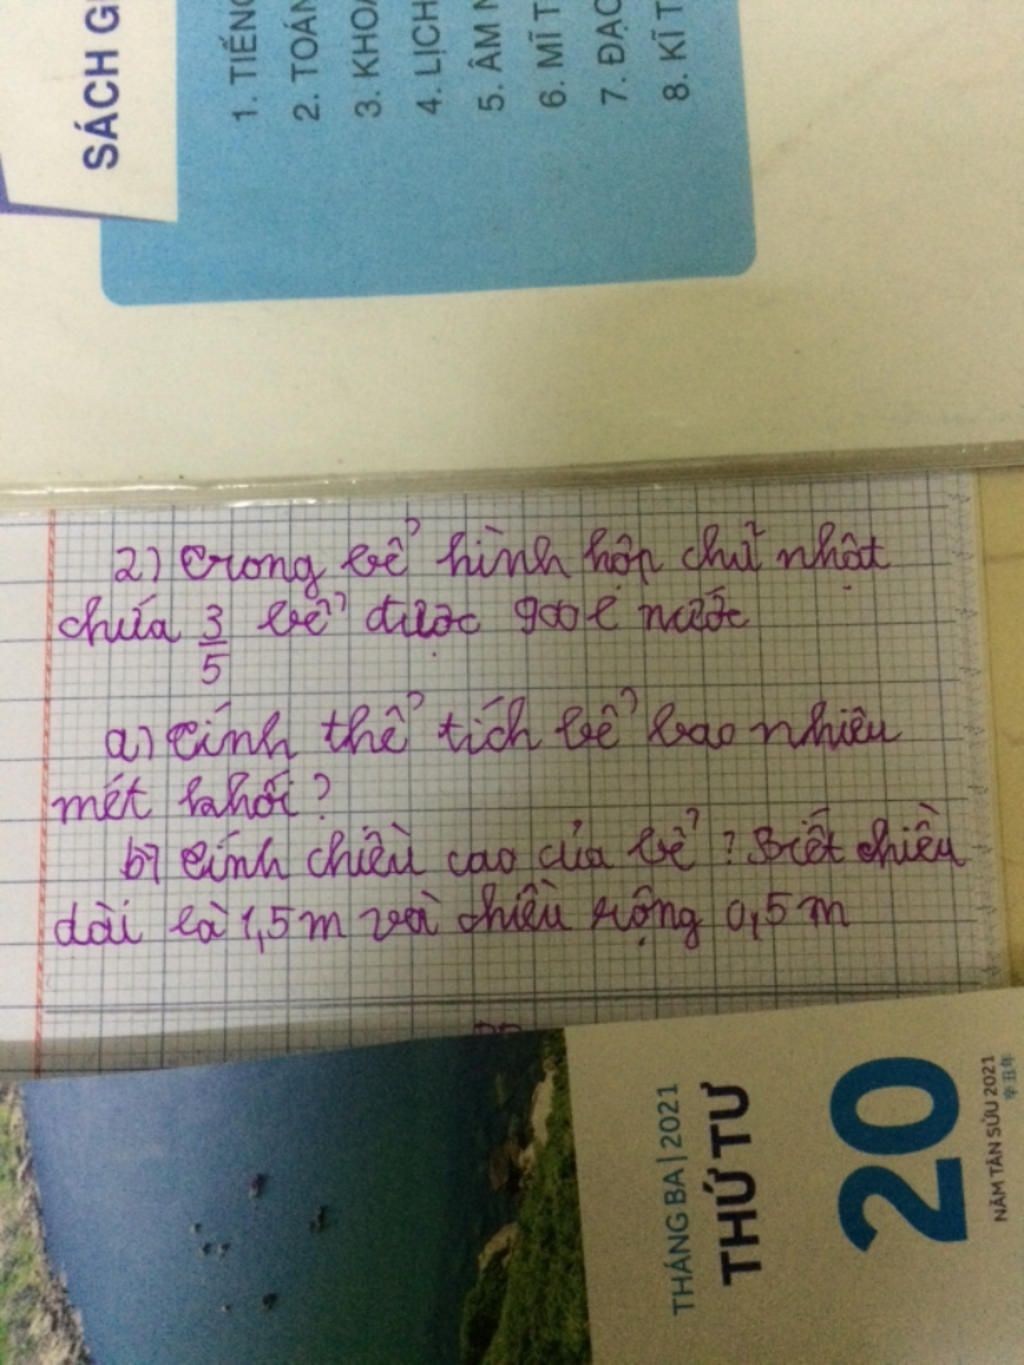 SÁCH G
1. TIẾNG
2. TOÁN
3. KHOA
4. LỊCH
5. ÂM N
6. MĨ T
7. ĐẠO
8. KĨ T
2) Trong bể hình hộp chữ nhật
chứa 3/5 bể được 900l nước
a) Tính thể tích bể bao nhiêu
mét khối?
b) Tính chiều cao của bể? Biết chiều
dài là 1,5m và chiều rộng 0,5m
THÁNG BA | 2021
THỨ TƯ
20
NĂM TÂN SỬU 2021
辛丑年